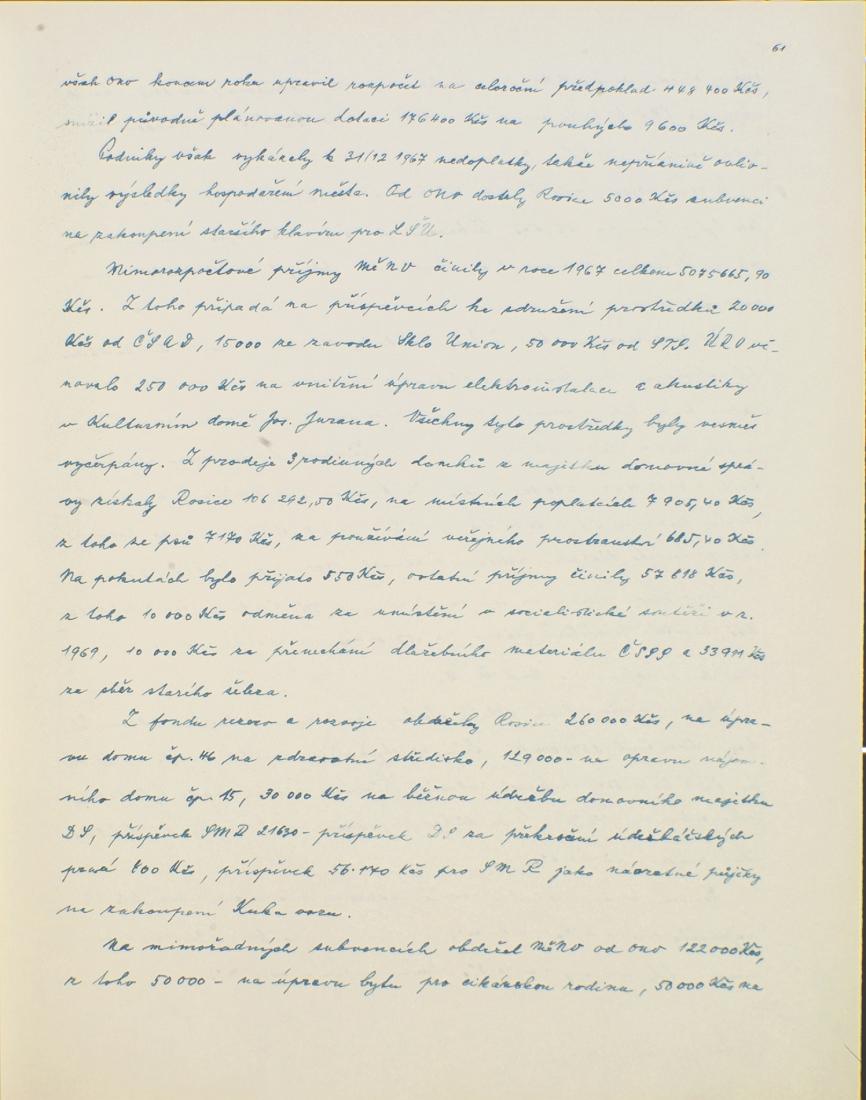 61
však ONV koncem roku upravil rozpočet na celoroční předpokład 448 400 Kčs,
snížil původně plánovanou dotaci 176400 Kčs na pouhých 9600 Kčs.
Podniky však vykázaly k 31/12 1967 nedoplatky, takže nepříznivě ovliv-
nily výsledky hospodaření města. Od ONV dostaly Rosice 5000 Kčs subvenci
na zakoupení staršího klavíru pro LŠU.
Mimorozpočtové příjmy MěNV činily v roce 1967 celkem 5075665,90
Kčs. Z toho připadá na příspěvcích ke sdružení prostředků 20000
Kčs od ČSAD, 15000 ze závodu Sklo Union, 50 000 Kčs od STS. ÚRO vě-
novalo 250 000 Kčs na vnitřní úpravu elektroinstalace a akustiky
v Kulturním domě Jos. Jurana. Všechny tyto prostředky byly vesměs
vyčerpány. Z prodeje 3 rodinných domků z majetku domovní sprá-
vy získaly Rosice 106 292,50 Kčs, na místních poplatcích 7 905,40 Kčs,
z toho ze psů 7170 Kčs, za používání veřejného prostranství 685,40 Kčs.
Na pokutách bylo přijato 550 Kčs, ostatní příjmy činily 57 818 Kčs,
z toho 10 000 Kčs odměna za umístění v socialistické soutěži v r.
1969, 10 000 Kčs za přenechání dlažebního materiálu ČSSS a 33911 Kčs
za sběr starého železa.
Z fondu rezerv a rozvoje obdržely Rosice 260 000 Kčs, na úpra-
vu domu čp. 46 na zdravotní středisko, 129 000 - na opravu nájem-
ního domu čp. 15, 30 000 Kčs na běžnou údržbu domovního majetku
DS, příspěvek SMR 21630 - příspěvek DS za překročení údržbářských
prací 800 Kčs, příspěvek 56.170 Kčs pro SMR jako návratné půjčky
na zakoupení Kuka vozu.
Na mimořádných subvencích obdržel MěNV od ONV 122000 Kčs,
z toho 50 000 - na úpravu bytu pro cikánskou rodinu, 50 000 Kčs na